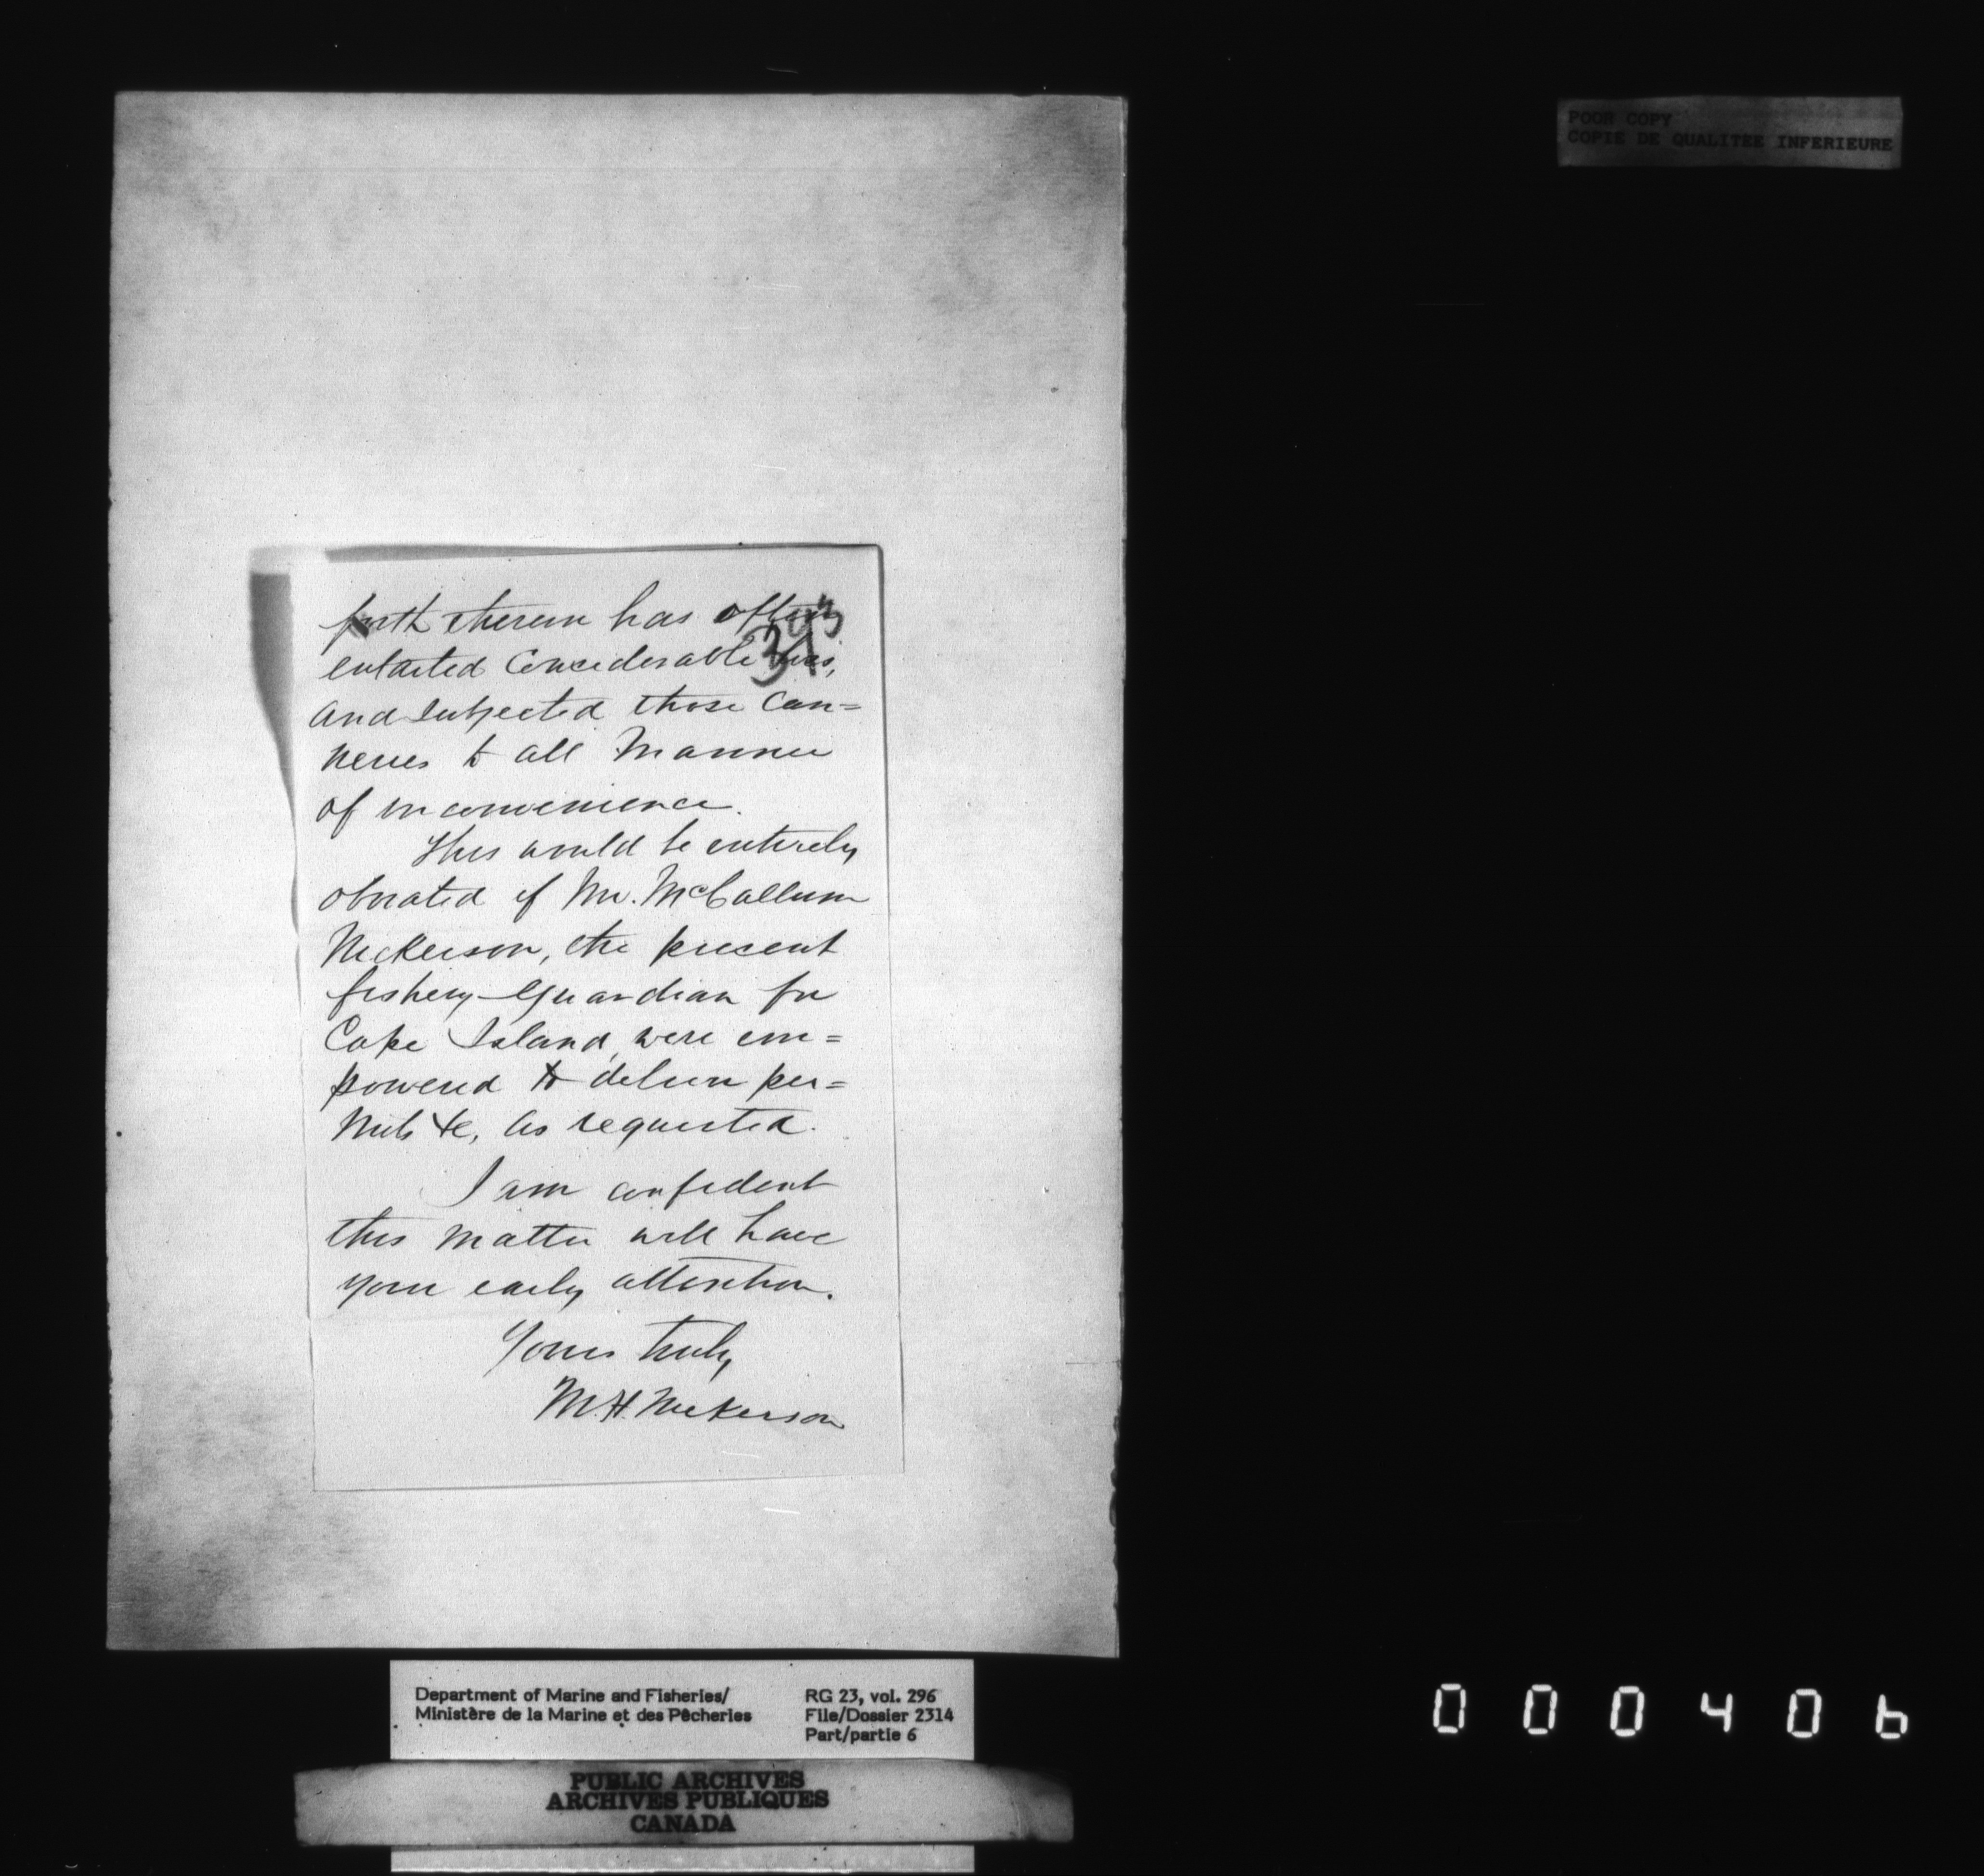 POOR COPY
COPIE DE QUALITEE INFERIEURE
393
forth therein has often
entailed considerable loss,
and subjected those can=
neries to all manner
of inconvenience.
This would be entirely
obviated if Mr. McCallum
Nickerson, the present
fishery-Guardian for
Cape Island, were em=
powered to deliver per=
mits &c, as requested.
I am confident
this matter will have
your early attention.
Yours truly,
M.H. Nickerson
Department of Marine and Fisheries/
Ministère de la Marine et des Pêcheries
RG 23, vol. 296
File/Dossier 2314
Part/partie 6
PUBLIC ARCHIVES
ARCHIVES PUBLIQUES
CANADA
000406